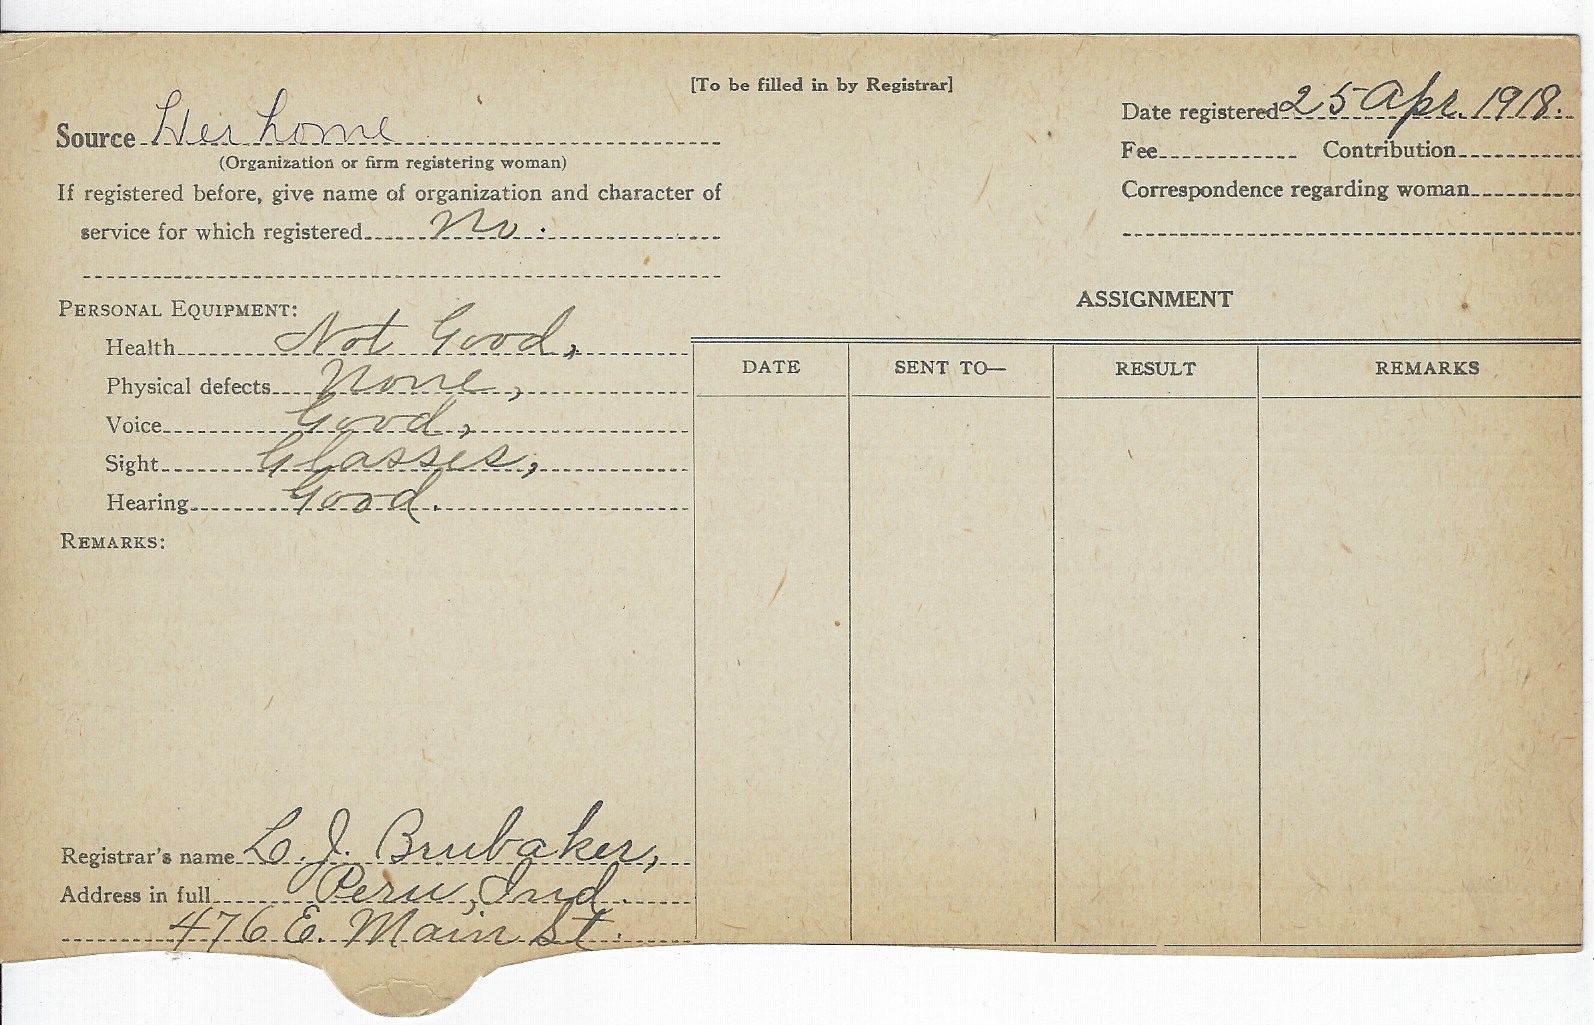 [To be filled in by Registrar]
Source Her home
(Organization or firm registering woman)
If registered before, give name of organization and character of
service for which registered No.
Date registered 25 Apr. 1918.
Fee Contribution
Correspondence regarding woman
PERSONAL EQUIPMENT:
Health Not Good,
Physical defects None,
Voice Good,
Sight Glasses,
Hearing Good.
REMARKS:
Registrar's name L. J. Brubaker,
Address in full Peru, Ind.
476 E. Main St.
ASSIGNMENT
DATE SENT TO— RESULT REMARKS